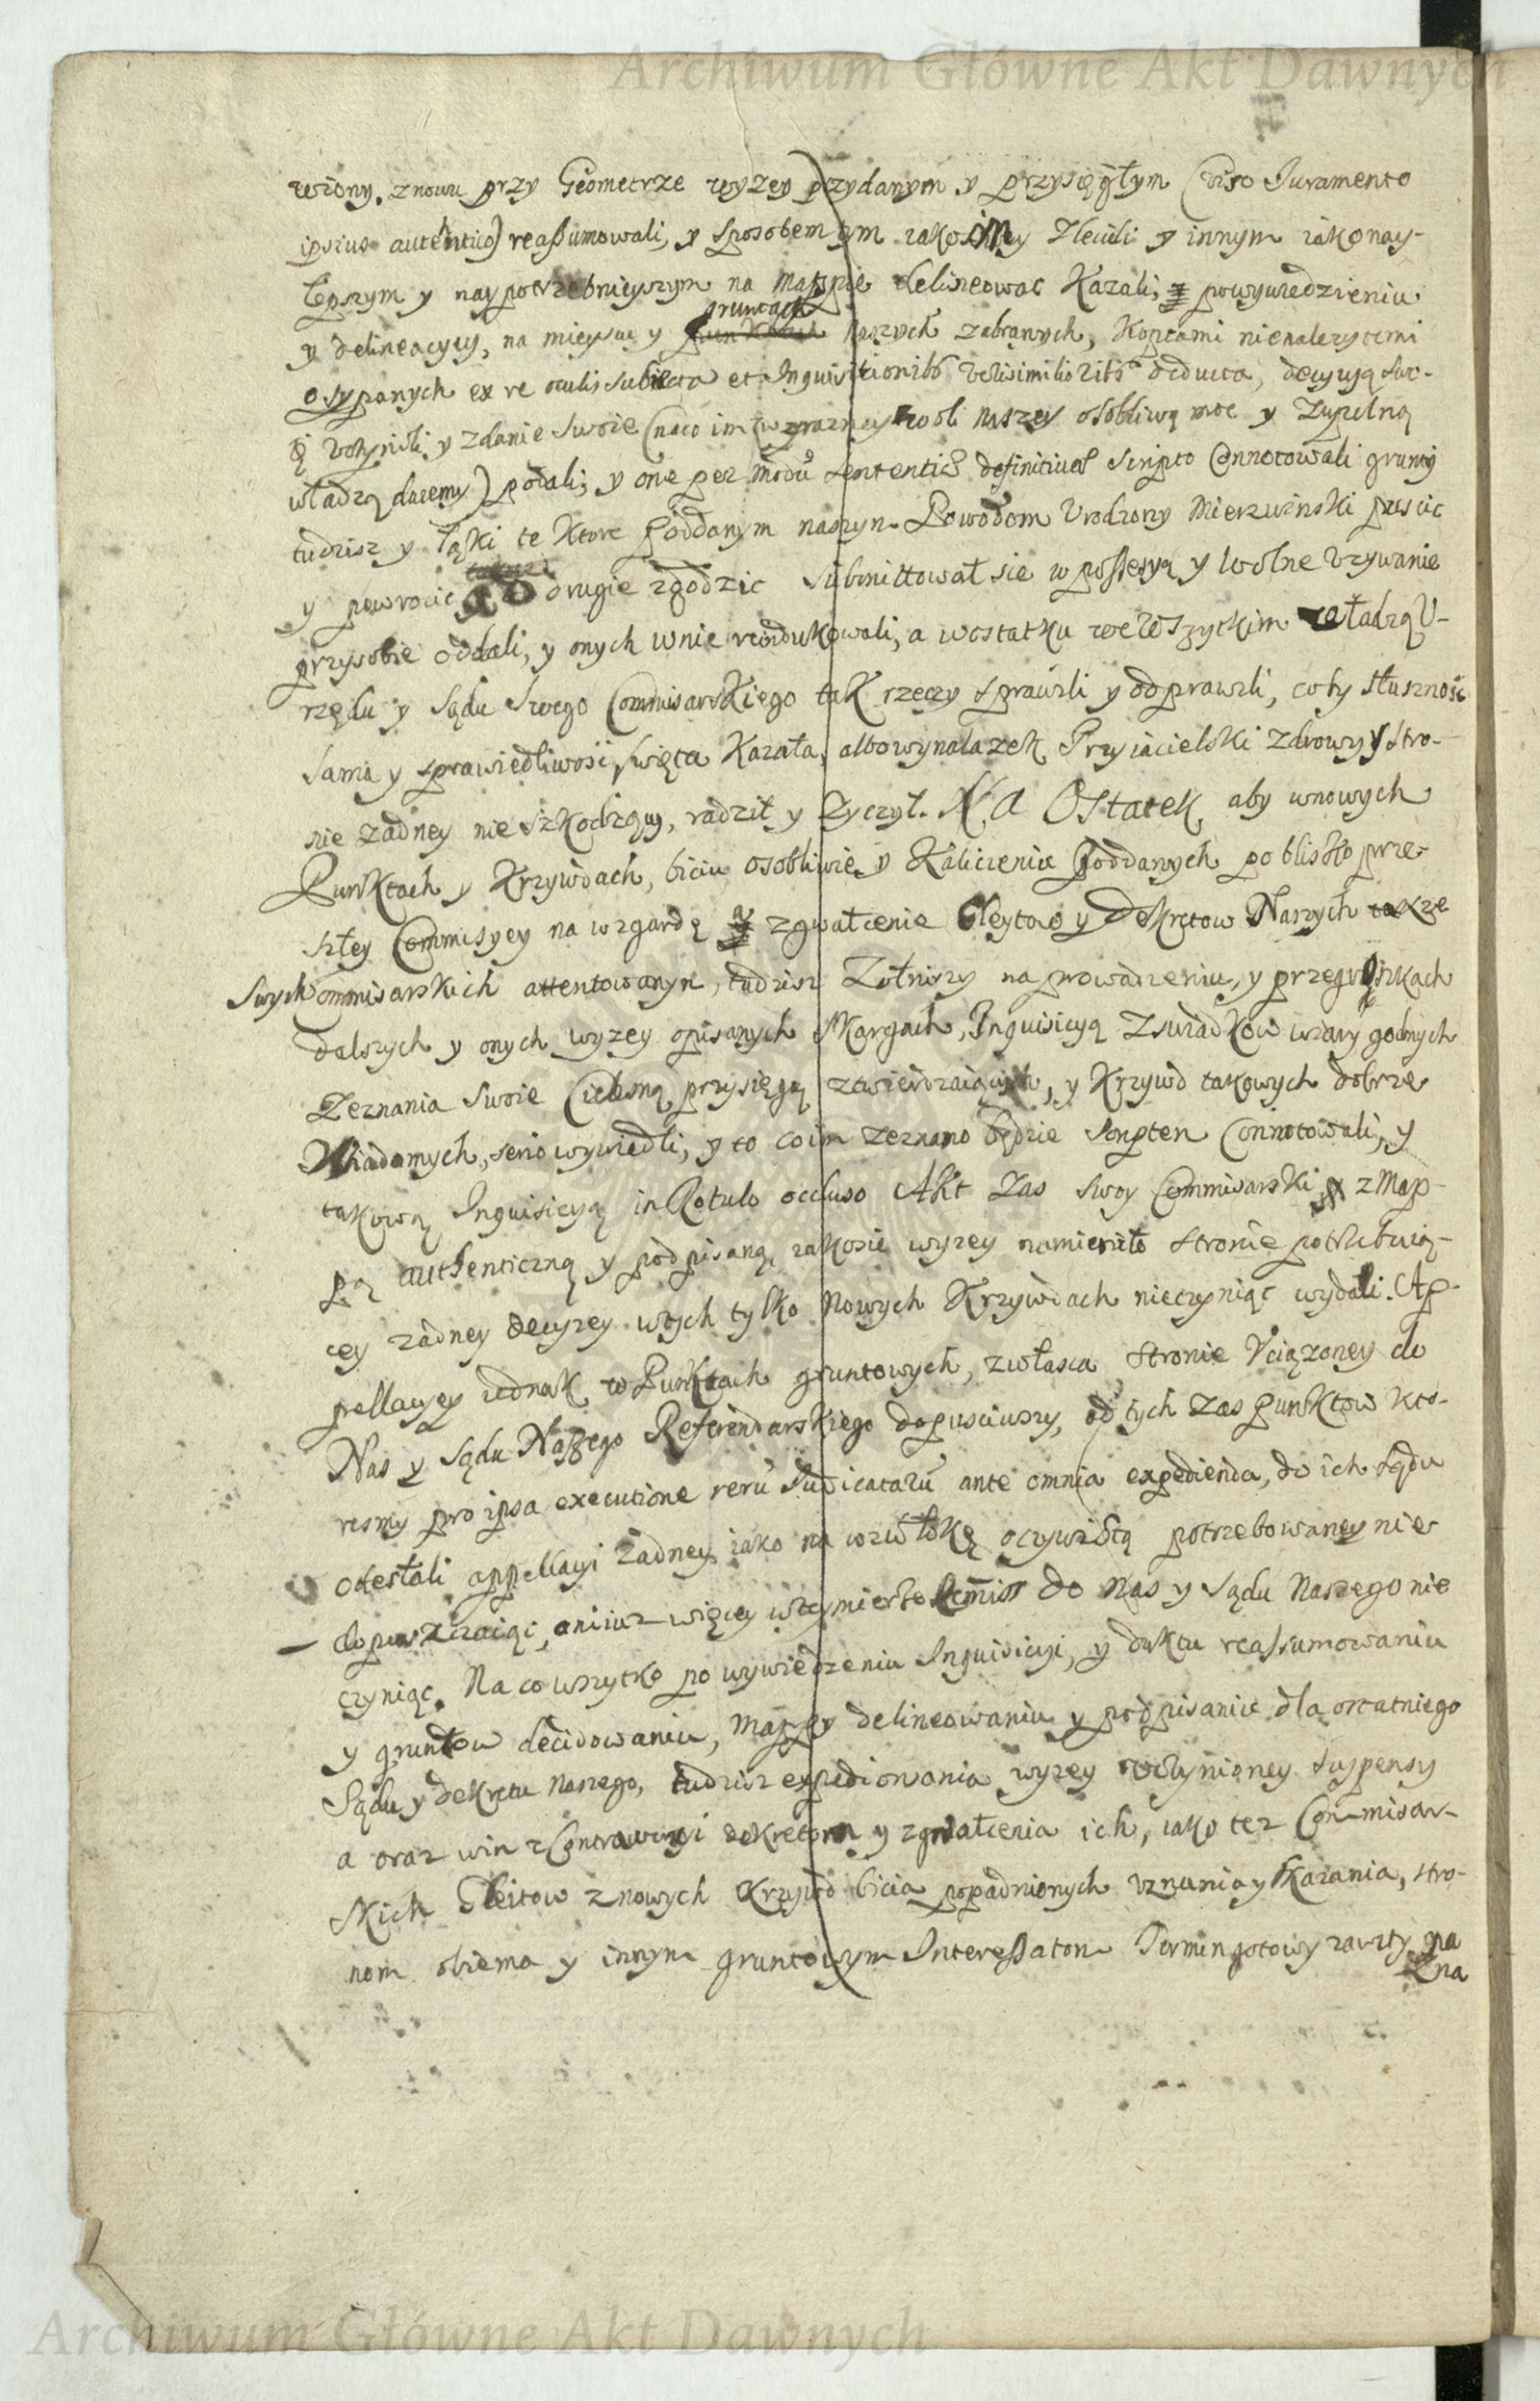 Archiwum Główne Akt Dawnych
wiony, znowu przy Geometrze wyzey przydanym y przysięgłym (viso Iuramento
ipsius autentico) reassumowali, y sposobem tym iakosmy zlecili y innym iako nay-
lepszym y naypotrzebnieyszym na mappie delineowac Kazali, powywiedzieniu
y delineacyey, na mieyscu y gruntach naszych zabranych, Kopcami nienalezytemi
osypanych ex re oculis subiecta et Inquisitionibs verisimilioribs deducta, decyzyą swo-
ię uczynili y zdanie swoie (naco im wyrazney woli naszey osobliwą moc y zupełną
władzą daiemy) podali, y one per modũ sententiæ definitivæ scripto Connotowali grunty
tudziez y łąki te Ktore Poddanym naszym Powodom Urodzony Mierzwinski puscic
y powrocic drugie zgodzic submittował sie w possessyą y wolne uzywanie
przysobie oddali, y onych wnie reindukowali, a wostatku we wszytkim władzą U-
rzędu y Sądu Swego Commisarskiego tak rzeczy sprawili y odprawili, coby słusznosc
sama y sprawiedliwosc święta Kazała, albo wynalazek Przyiacielski zdrowy y stro-
nie zadney nieszkodzący, radził y zyczył. NA Ostatek aby wnowych
Punktach y Krzywdach, biciu osobliwie y Kaliczeniu Poddanych poblisko prze-
szłey Commisyey na wzgardę y zgwałcenie Gleytow y Dekretow Naszych takze
Swych Commisarskich attentowanym, tudziesz Zołnierzy naprowadzeniu, y przegrozkach
dalszych y onych wyzey opisanych skargach, Inquisicyą z swiadkow wiary godnych
Zeznania swoie Cielesną przysięgą ztwierdzaiących, y Krzywd takowych dobrze
Wiadomych, serio wywiedli, y to co im zeznano będzie Connotowali, y
takową Inquisicyą in Rotulo occluso Akt zas swoy Commisarski z Map-
pą authenticzną y podpisaną, iakosie wyzey namieniło stronie potrzebuią-
cey zadney decyzey wtych tylko nowych Krzywdach nieczyniąc wydali. Ap-
pellacyey iednak w Punktach gruntowych, zwłasca stronie Uciązoney do
Nas y Sądu Naszego Referendarskiego dopusciwszy, od tych zas punktow kto-
resmy pro ipsa executione rerũ Iudicatarũ ante omnia expedienda, do ich sądu
odesłali appellacyi zadney, iako na zwłokę oczywistą potrzebowaney nie
dopuszczaiąc, aniiuz więcey wteymierze Remiss do Nas y Sądu Naszego nie
czyniąc. Na co wszytko po wywiedzeniu Inquisicyi, y duktu reassumowaniu
y gruntow decidowaniu, Mappy delineowaniu y podpisaniu dla ostatniego
Sądu y dekretu naszego, tudziesz expediowania wyzey uczynioney suspensy
a oraz win z Contrawencyi dekretom y zgwałcenia ich, iako tez Commisar-
skich Gleitow z nowych Krzywd bicia popadnionych uznania y skarania, stro-
nom obiema y innym gruntowym Interessatom Termin gotowy zawity na
na
Archiwum Główne Akt Dawnych